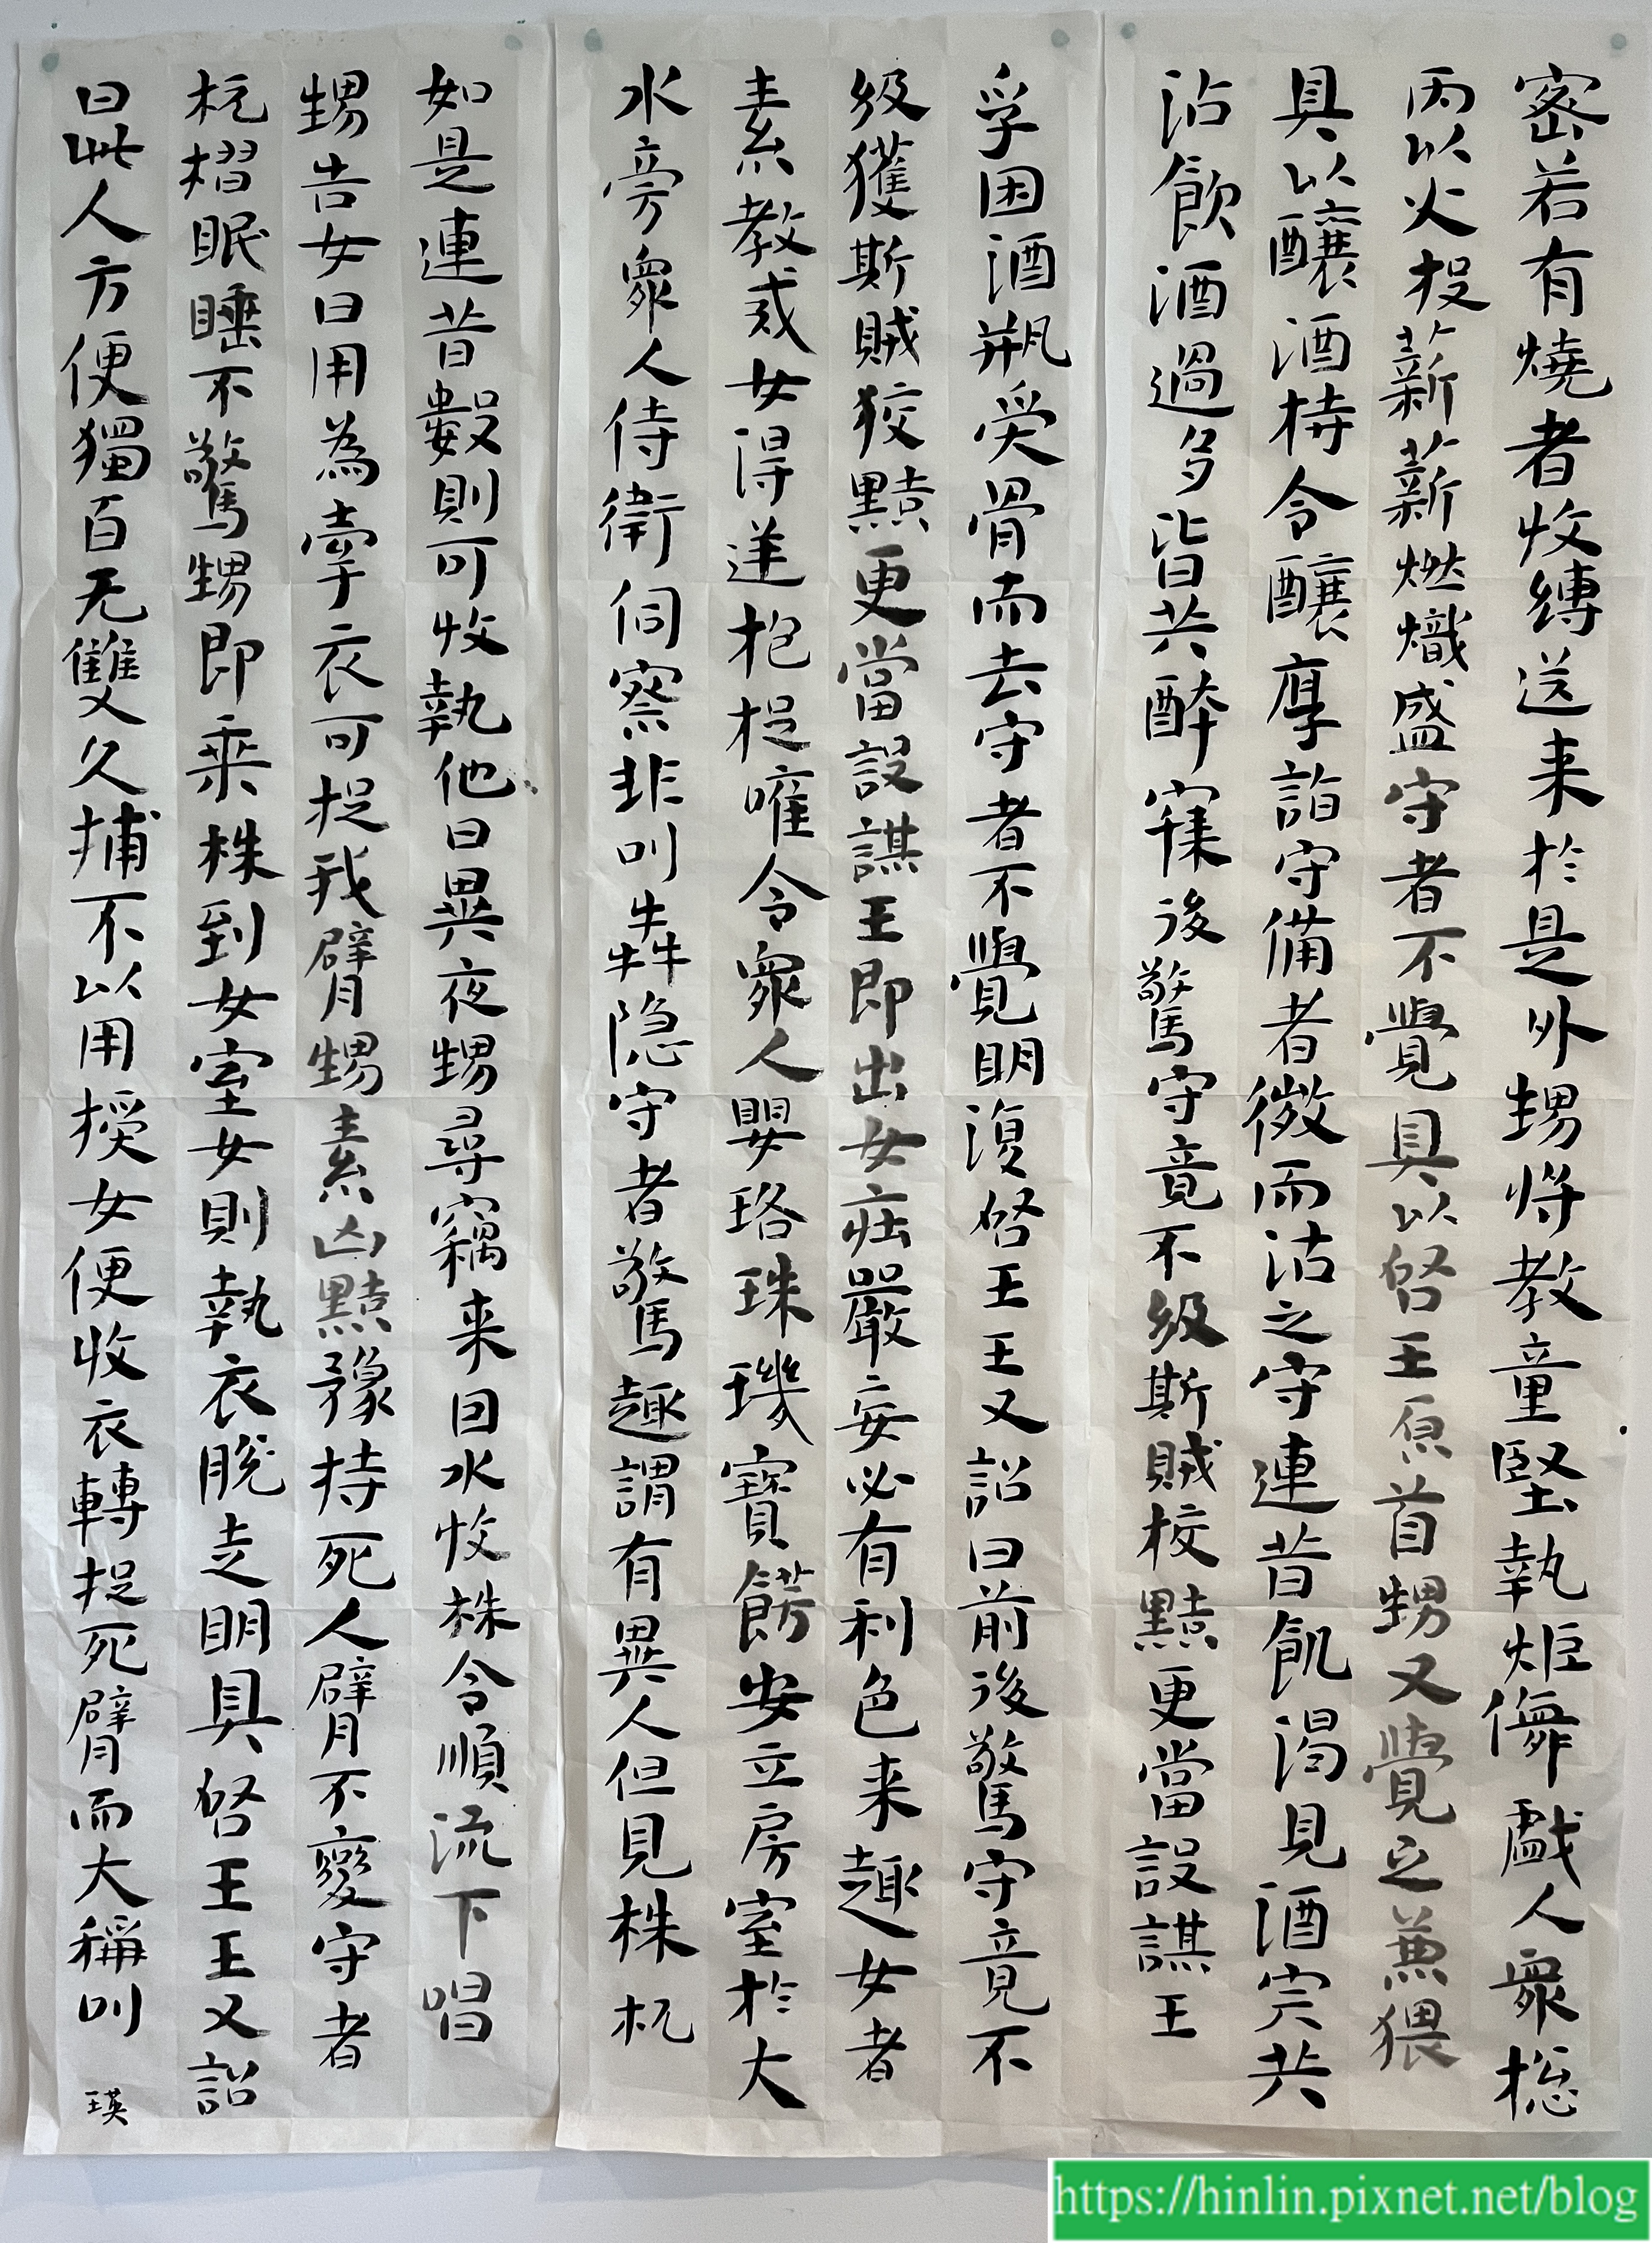 密若有燒者收縛送来於是外甥将教童竪執炬儛戲人衆捴
丙以火投薪薪燃熾盛守者不覺具以啓王原首甥又覺之兼猥
具以釀酒特令釀厚詣守備者微而沽之守連昔飢渴見酒宗共
沾飲酒過多皆共醉寐後驚守竟不級斯賊校黠更當設謀王
孚困酒瓶受骨而去守者不覺明復啓王王又詔曰前後驚守竟不
級獲斯賊狡黠更當設謀王即出女莊嚴妄必有利色来趣女者
素教戒女得逆抱捉唯令衆人嬰珞珠璣寶餝安立房室於大
水旁衆人侍衛伺察非叫犇隐守者驚趣謂有異人但見株杌
如是連昔數則可收執他日異夜甥尋竊来因水收株令順流下唱
甥告女曰用為牽衣可捉我臂甥素凶黠豫持死人臂不變守者
杌槢眠睡不驚甥即乘株到女室女則執衣脫走明具啓王王又詔
曰此人方便獨百无雙久捕不以用授女便收衣轉捉死臂而大稱叫
瑛
https://hinlin.pixnet.net/blog